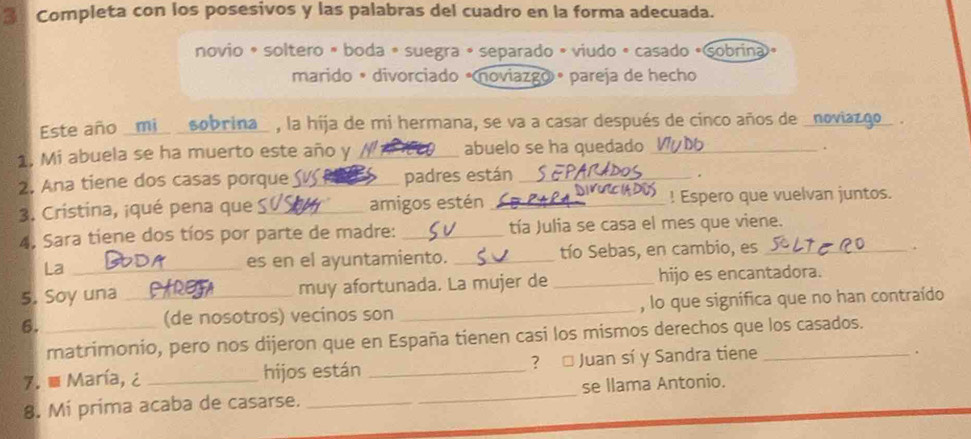 3 Completa con los posesivos y las palabras del cuadro en la forma adecuada.
novio • soltero • boda • suegra • separado • viudo • casado • sobrina •
marido • divorciado • noviazgo • pareja de hecho
Este año mi sobrina , la hija de mi hermana, se va a casar después de cinco años de noviazgo .
1. Mi abuela se ha muerto este año y ____ abuelo se ha quedado VIUDO .
2. Ana tiene dos casas porque SUS padres están SEPARADOS .
3. Cristina, ¡qué pena que SUS amigos estén DIVORCIADOS ! Espero que vuelvan juntos.
4. Sara tiene dos tíos por parte de madre: SU tía Julia se casa el mes que viene.
La BODA es en el ayuntamiento. SU tío Sebas, en cambio, es SOLTERO .
5. Soy una PAREJA muy afortunada. La mujer de ____ hijo es encantadora.
6. ____ (de nosotros) vecinos son ____ , lo que significa que no han contraído
matrimonio, pero nos dijeron que en España tienen casi los mismos derechos que los casados.
7. ■ María, ¿ ____ hijos están ____ ? □ Juan sí y Sandra tiene ____ .
8. Mi prima acaba de casarse. ____ ____ se llama Antonio.